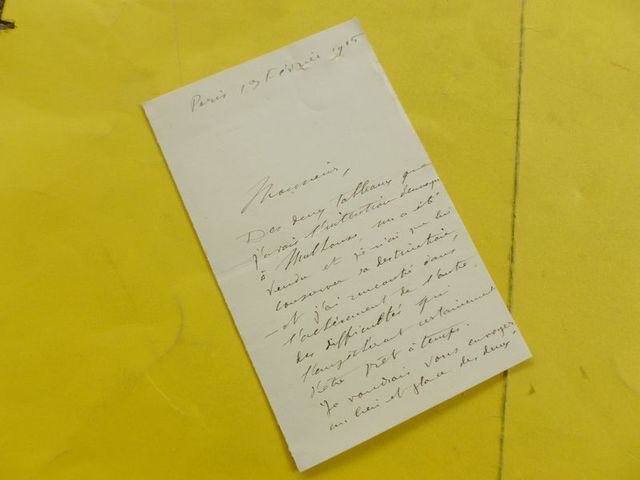 Paris 13 Février 1905
Monsieur,
Des deux tableaux que
j'avais l'intention d'envoyer
à Mulhouse, un a été
vendu et je n'ai pu lui
conserver sa destination,
— et j'ai rencontré dans
l'achèvement de l'autre
des difficultés qui
l'empêcheront certainement
d'être prêt à temps.
Je voudrais vous envoyer
au lieu et place des deux